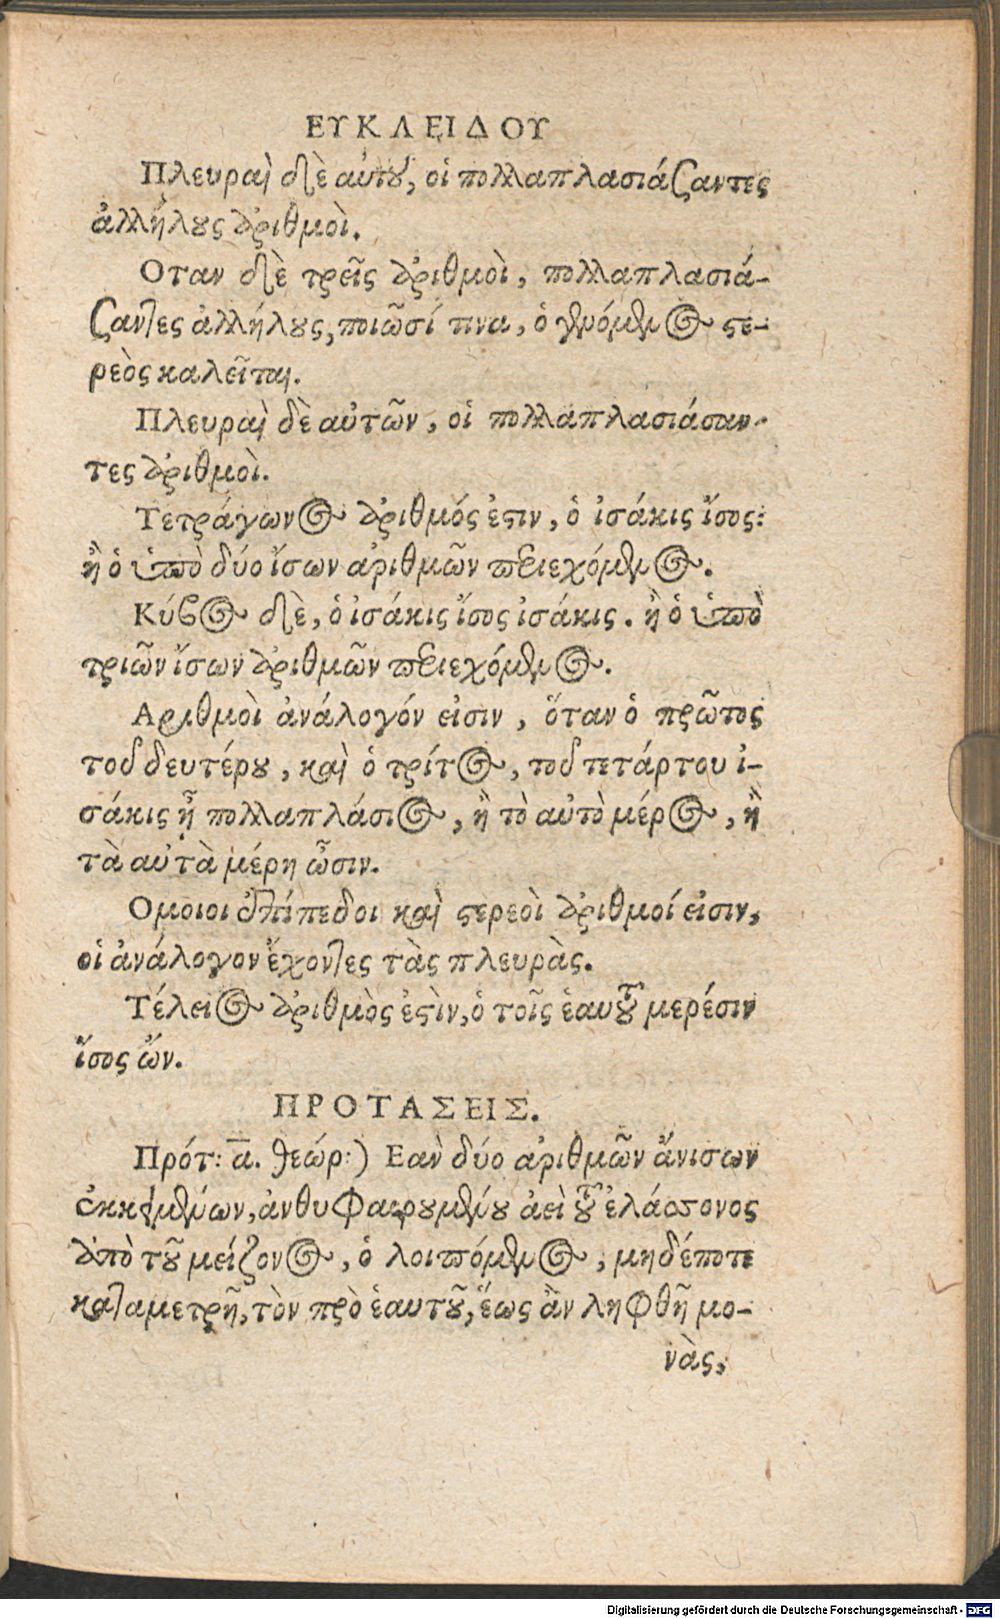 ΕΥΚΛΕΙΔΟΥ
Πλευραὶ δὲ αὐτοῦ, οἱ πολλαπλασιάζαντες
ἀλλήλους ἀριθμοὶ.
Οταν δὲ τρεῖς ἀριθμοὶ, πολλαπλασιά-
ζαντες ἀλλήλους, ποιῶσί τινα, ὁ γενόμενος στε-
ρεὸς καλεῖται.
Πλευραὶ δὲ αὐτῶν, οἱ πολλαπλασιάσαν-
τες ἀριθμοὶ.
Τετράγωνος ἀριθμός ἐστιν, ὁ ἰσάκις ἴσος:
ἢ ὁ ὑπὸ δύο ἴσων ἀριθμῶν περιεχόμενος.
Κύβος δὲ, ὁ ἰσάκις ἴσος ἰσάκις. ἢ ὁ ὑπὸ
τριῶν ἴσων ἀριθμῶν περιεχόμενος.
Αριθμοὶ ἀνάλογόν εἰσιν, ὅταν ὁ πρῶτος
τοῦ δευτέρου, καὶ ὁ τρίτος, τοῦ τετάρτου ἰ-
σάκις ᾖ πολλαπλάσιος, ἢ τὸ αὐτὸ μέρος, ἢ
τὰ αὐτὰ μέρη ὦσιν.
Ομοιοι ἐπίπεδοι καὶ στερεοὶ ἀριθμοί εἰσιν,
οἱ ἀνάλογον ἔχοντες τὰς πλευρὰς.
Τέλειος ἀριθμὸς ἐστὶν, ὁ τοῖς ἑαυτοῦ μερέσιν
ἴσος ὤν.
ΠΡΟΤΑΣΕΙΣ.
Πρότ: α. θεώρ:) Εαν δύο ἀριθμῶν ἄνισων
ἐκκειμένων, ἀνθυφαιρουμένου ἀεὶ τοῦ ἐλάσσονος
ἀπὸ τοῦ μείζονος, ὁ λοιπόμενος, μηδέποτε
καταμετρῇ, τὸν πρὸ ἑαυτοῦ, ἕως ἂν ληφθῇ μο-
νὰς,
Digitalisierung gefördert durch die Deutsche Forschungsgemeinschaft - DFG